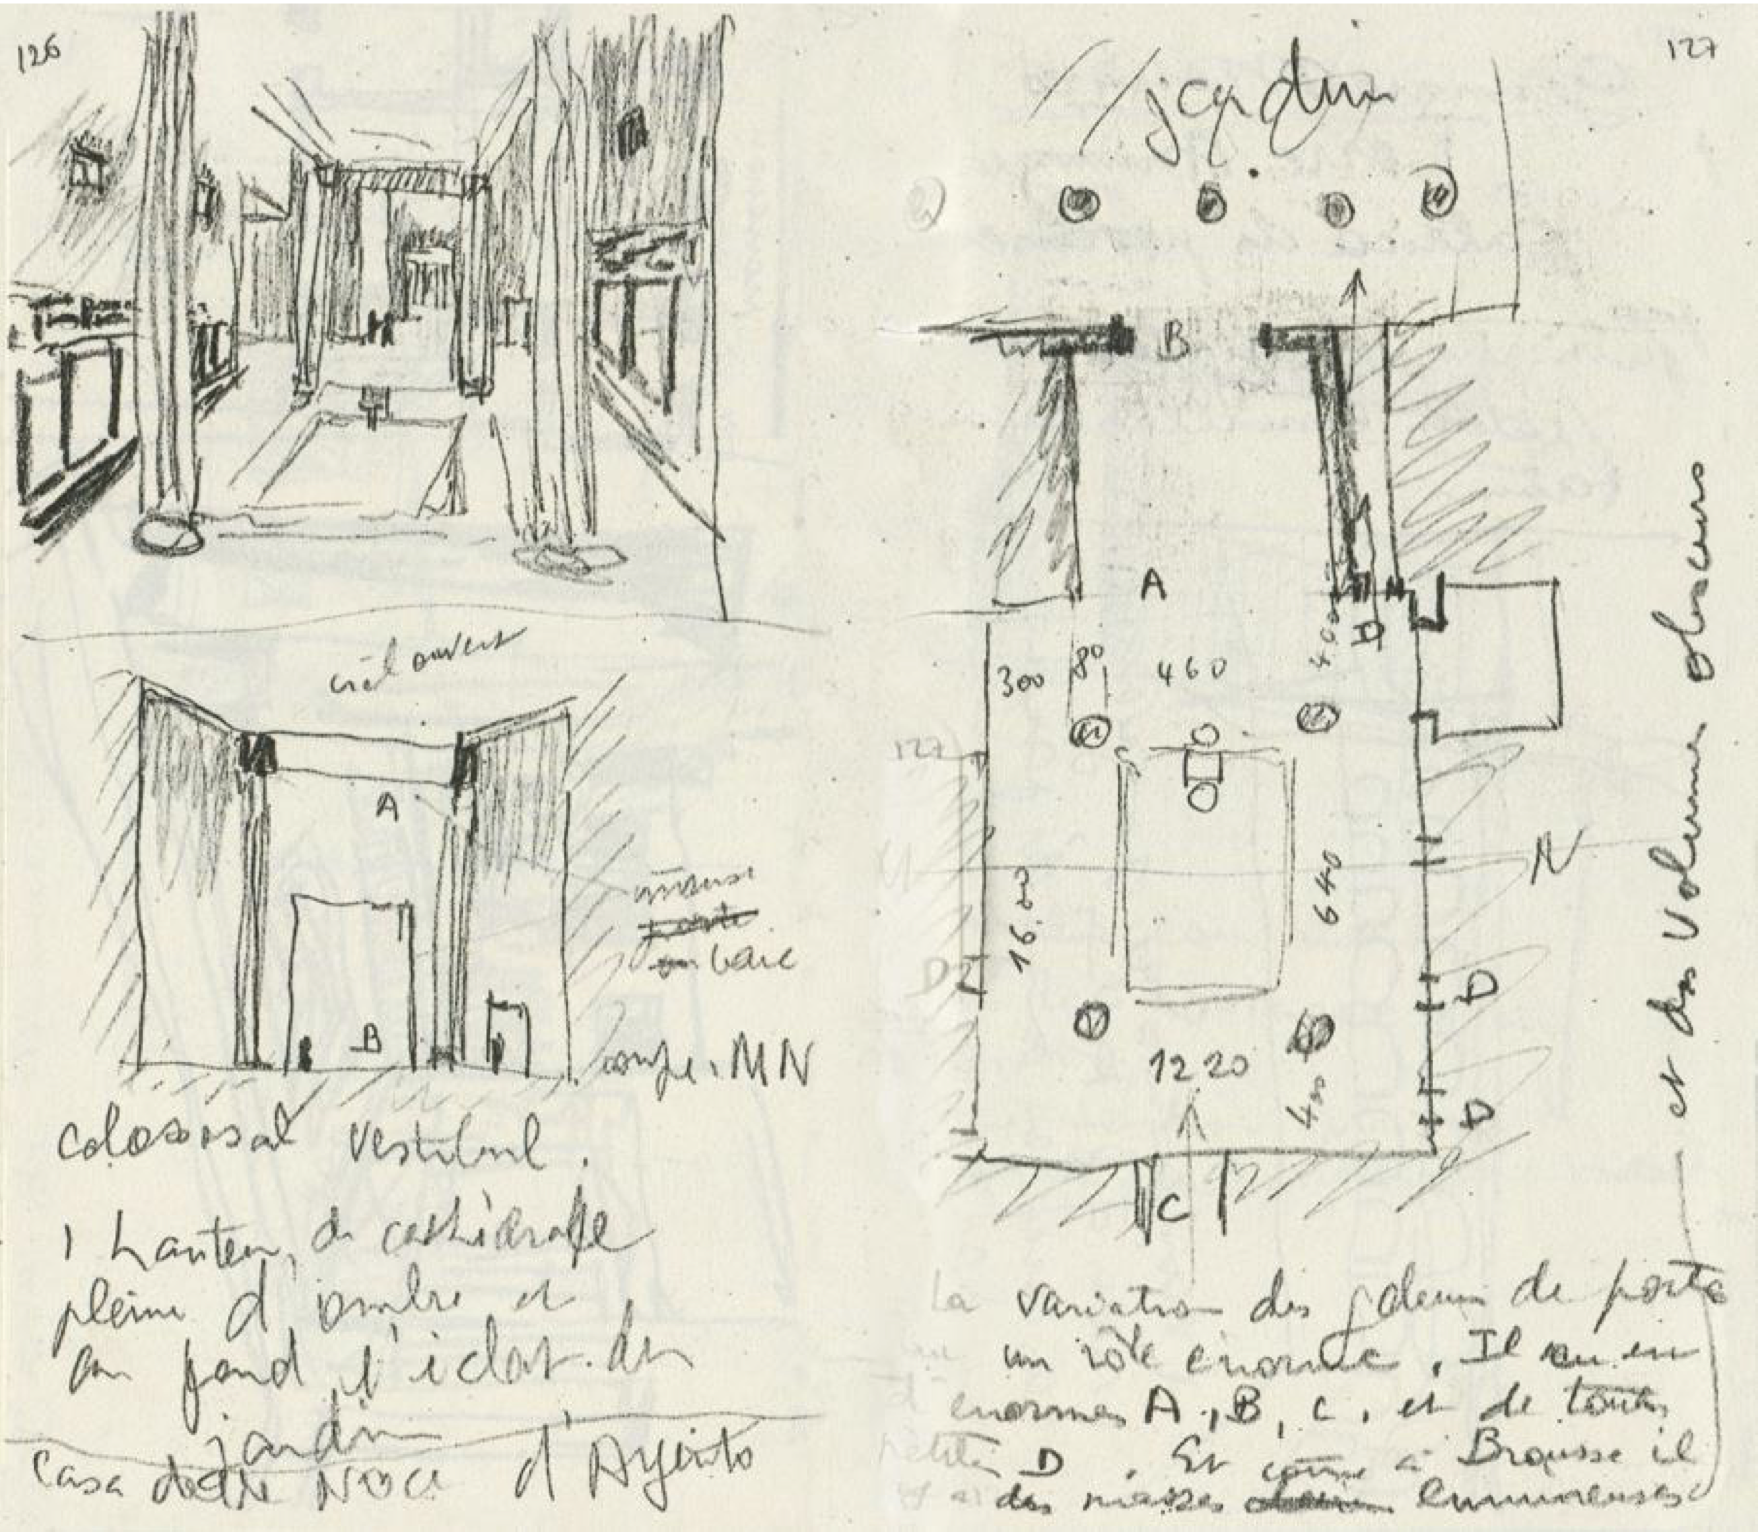 126
ciel ouvert
A
immense
ou baie
B
coupe. MN
Colossal vestibul.
1 hauteur de cathédrale
pleine d'ombre et
au fond l'éclat du
jardin
Casa delle Noce d'Argento
127
jardin
B
A
D
300 80 460 400
127
16.20
640
N
D
D
D
1220
400
C
La variation des de porte
un rôle enorme. Il en
enormes A, B, C, et de toutes
petites D. Et comme à Brousse il
y a des masses lumineuses
et des volumes obscurs